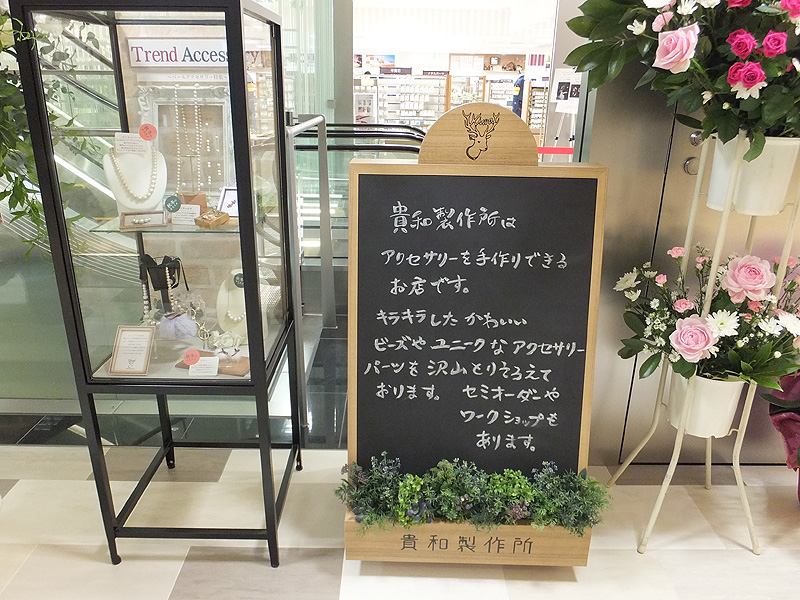 Trend Accessory
貴和製作所は
アクセサリーを手作りできる
お店です。
キラキラしたかわいい
ビーズや ユニークな アクセサリー
パーツを 沢山とりそろえて
おります。 セミオーダーや
ワークショップも
あります。
貴和製作所